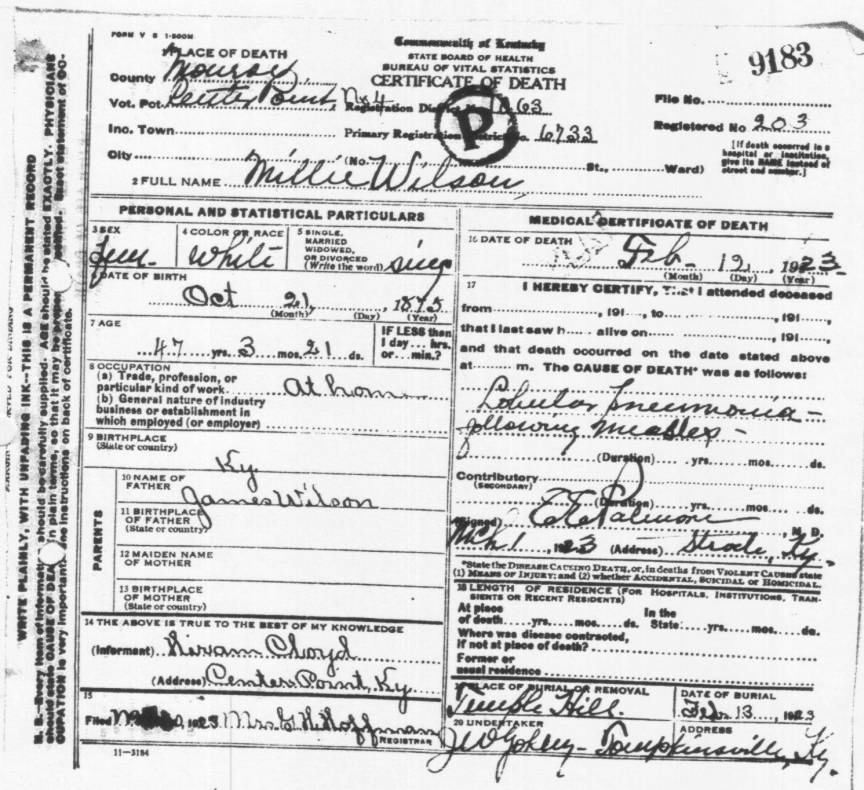 FORM V S 1-500M
Commonwealth of Kentucky
STATE BOARD OF HEALTH
BUREAU OF VITAL STATISTICS
CERTIFICATE OF DEATH
9183
PLACE OF DEATH
County Monroe
Vot. Pct. Center Point, No 4 Registration District No. 1063
File No.
Inc. Town Primary Registration District No. 6733
Registered No 203
City (No. St., Ward)
[If death occurred in a hospital or institution, give its NAME instead of street and number.]
P
2 FULL NAME Millie Wilson
PERSONAL AND STATISTICAL PARTICULARS
3 SEX
Fem.
4 COLOR OR RACE
White
5 SINGLE,
MARRIED
WIDOWED,
OR DIVORCED
(Write the word) sing
DATE OF BIRTH
Oct 21, 1875
(Month) (Day) (Year)
7 AGE
47 yrs. 3 mos. 21 ds.
IF LESS than
1 day... hrs.
or... min.?
8 OCCUPATION
(a) Trade, profession, or
particular kind of work At home
(b) General nature of industry
business or establishment in
which employed (or employer)
9 BIRTHPLACE
(State or country)
Ky.
PARENTS
10 NAME OF
FATHER
James Wilson
11 BIRTHPLACE
OF FATHER
(State or country)
12 MAIDEN NAME
OF MOTHER
13 BIRTHPLACE
OF MOTHER
(State or country)
14 THE ABOVE IS TRUE TO THE BEST OF MY KNOWLEDGE
(Informant) Hiram
(Address) Center Point, Ky
15
Filed 1923 Mrs Hoffman
REGISTRAR
11-3184
MEDICAL CERTIFICATE OF DEATH
16 DATE OF DEATH
Feb 12, 1923
(Month) (Day) (Year)
17 I HEREBY CERTIFY, That I attended deceased
from , 191 , to , 191 ,
that I last saw h alive on , 191 ,
and that death occurred on the date stated above
at m. The CAUSE OF DEATH* was as follows:
Lobular Pneumonia -
following Measles -
(Duration) yrs. mos. ds.
Contributory
(SECONDARY)
(Duration) yrs. mos. ds.
(Signed) E E Palmore, M. D.
Mch 1, 1923 (Address) Strode, Ky.
*State the DISEASE CAUSING DEATH, or, in deaths from VIOLENT CAUSES state
(1) MEANS OF INJURY; and (2) whether ACCIDENTAL, SUICIDAL or HOMICIDAL.
18 LENGTH OF RESIDENCE (FOR HOSPITALS, INSTITUTIONS, TRAN-
SIENTS OR RECENT RESIDENTS)
At place
of death yrs. mos. ds.
In the
State yrs. mos. ds.
Where was disease contracted,
if not at place of death?
Former or
usual residence
PLACE OF BURIAL OR REMOVAL
Temple Hill.
DATE OF BURIAL
Feb 13, 1923
20 UNDERTAKER
ADDRESS
Tompkinsville, Ky.
WRITE PLAINLY, WITH UNFADING INK--THIS IS A PERMANENT RECORD
N. B.--Every item of information should be carefully supplied. AGE should be stated EXACTLY. PHYSICIANS
should state CAUSE OF DEATH in plain terms, so that it may be properly classified. Exact statement of OC-
CUPATION is very important. See instructions on back of certificate.